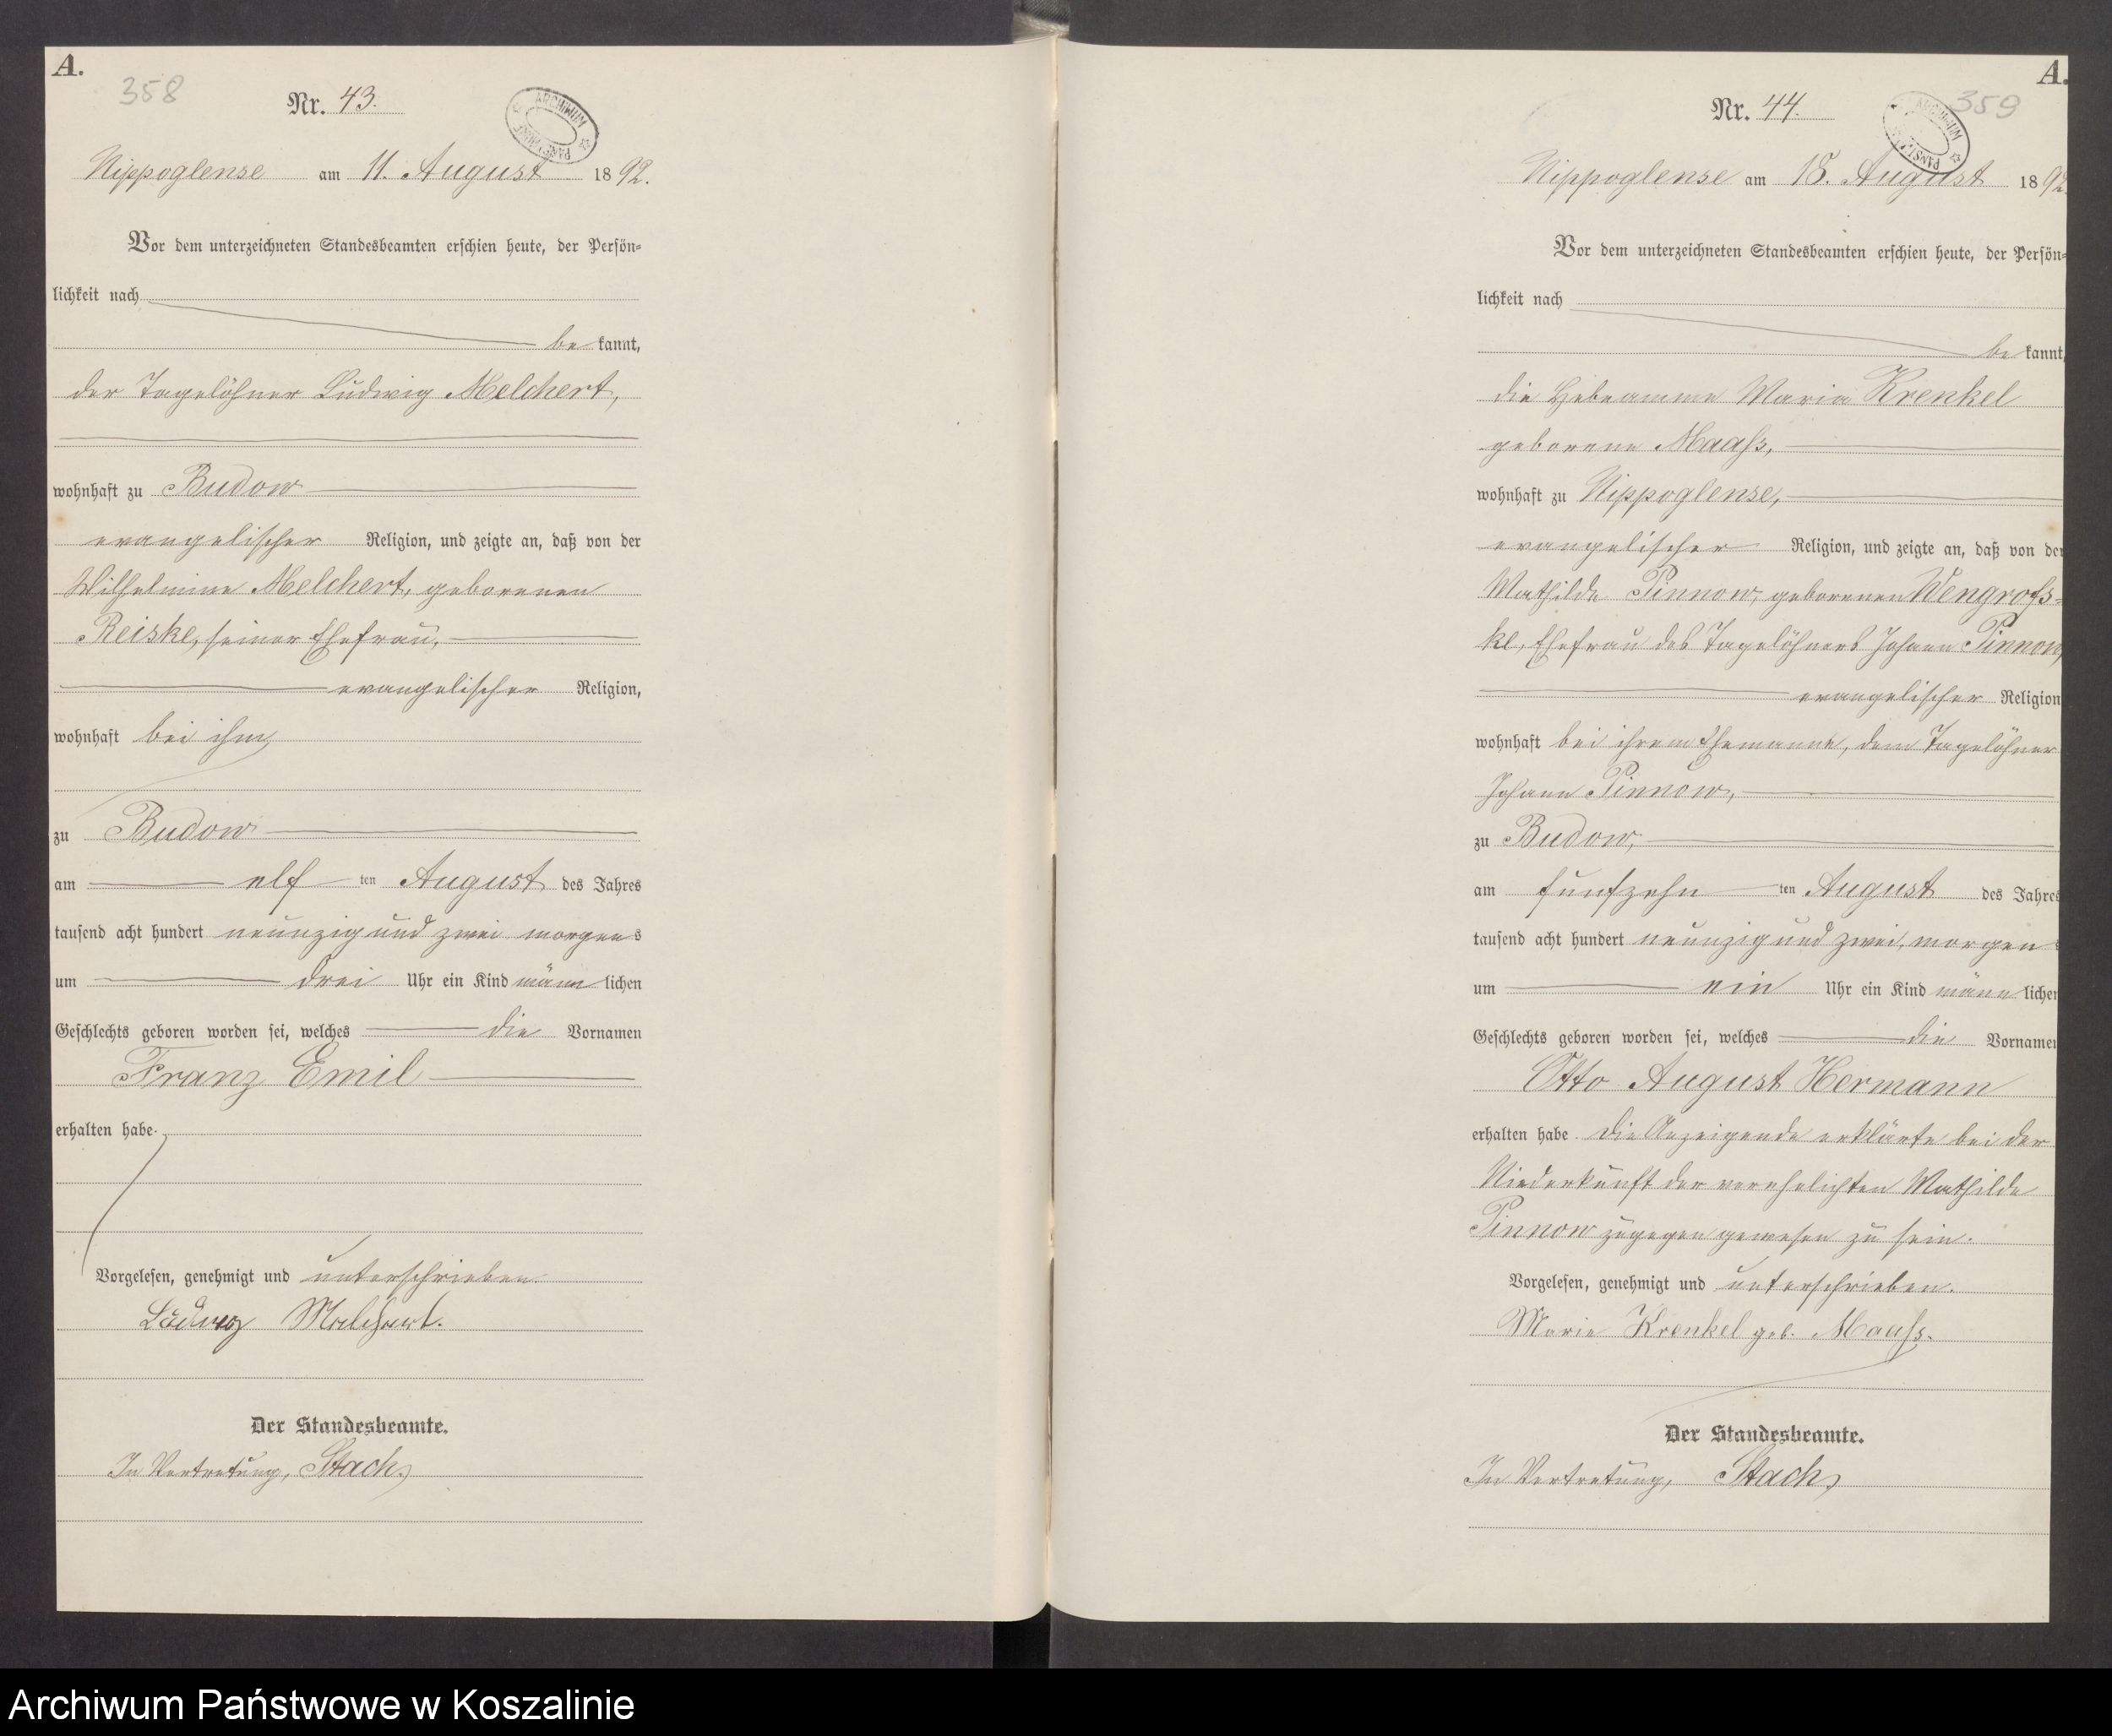 A.
358
Nr. 43.
ARCHIWUM PAŃSTWOWE
Nippoglense am 11. August 1892.
Vor dem unterzeichneten Standesbeamten erschien heute, der Persön-
lichkeit nach
be kannt,
der Tagelöhner Ludwig Melchert,
wohnhaft zu Budow
evangelischer Religion, und zeigte an, daß von der
Wilhelmine Melchert, geborenen
Reiske, seiner Ehefrau,
evangelischer Religion,
wohnhaft bei ihm,
zu Budow
am elf ten August des Jahres
tausend acht hundert neunzig und zwei morgens
um drei Uhr ein Kind männ lichen
Geschlechts geboren worden sei, welches die Vornamen
Franz Emil
erhalten habe.
Vorgelesen, genehmigt und unterschrieben.
Ludwig Melchert.
Der Standesbeamte.
In Vertretung, Stach
A.
359
Nr. 44.
ARCHIWUM PAŃSTWOWE
Nippoglense am 18. August 1892
Vor dem unterzeichneten Standesbeamten erschien heute, der Persön-
lichkeit nach
be kannt,
die Hebeamme Maria Krenkel
geborene Maass,
wohnhaft zu Nippoglense,
evangelischer Religion, und zeigte an, daß von der
Mathilde Pinnow, geborenen Wengrofs-
ke, Ehefrau des Tagelöhners Johann Pinnow,
evangelischer Religion
wohnhaft bei ihrem Ehemanne, dem Tagelöhner
Johann Pinnow,
zu Budow,
am fünfzehn ten August des Jahres
tausend acht hundert neunzig und zwei, morgens
um ein Uhr ein Kind männ lichen
Geschlechts geboren worden sei, welches die Vornamen
Otto August Hermann
erhalten habe. Die Anzeigende erklärte bei der
Niederkunft der verehelichten Mathilde
Pinnow zugegen gewesen zu sein.
Vorgelesen, genehmigt und unterschrieben.
Marie Krenkel geb. Maass.
Der Standesbeamte.
In Vertretung, Stach
Archiwum Państwowe w Koszalinie